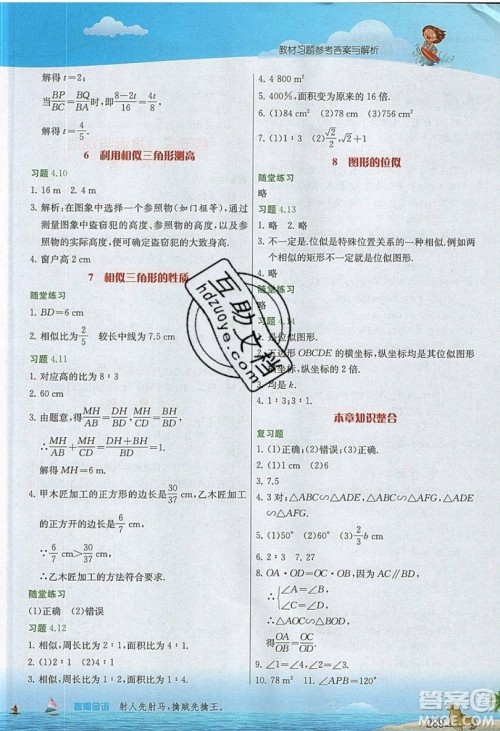 教材习题参考答案与解析
解得 t=2;
当BP/BC=BQ/BA时,即(8-2t)/8=4t/16,
解得 t=4/5.
6 利用相似三角形测高
习题 4.10
1. 16 m 2. 40 m
3. 解析:在图象中选择一个参照物(如门框等),通过
测量图象中盗窃犯的高度、以及参照物的高度、以
及参照物的实际高度,便可大致确定盗窃犯的身高.
4. 窗户高 2 cm
7 相似三角形的性质
随堂练习
1. BD=6 cm
2. 相似比为2/5 较长中线为 7.5 cm
习题 4.11
1. 对应高的比为 8∶3
2. 60 cm
3. 由题意,得MH/AH=DH/BD,MH/AB=DM/BD,∴MH/AH+
MH/AB=DH/BD+DM/BD.
解得 MH=6.
4. 甲木匠加工的正方形的边长是30/37 cm,乙木匠加工
的正方形的边长是6/7 cm
∵6/7 cm>30/37 cm,
∴乙木匠加工的方法符合要求.
随堂练习
(1)正确 (2)错误
习题 4.12
1. 相似,周长比为 2∶1,面积比为 4∶1.
2. (1)2∶1 (2)相似,周长比为 2∶1,面积比为 4∶1.
4. 4 800 m²
5. 400%,面积变为原来的 16 倍.
6. (1)84 cm² (2)78 cm² (3)756 cm²
7. (1)1∶3 (2)√2/2
8 图形的位似
随堂练习
略
习题 4.13
1. 略 2. 略
3. 不一定是.位似是特殊位置关系的一种相似.例如两
个相似的矩形不一定就是位似图形.
随堂练习
略
习题 4.14
1. 是位似图形.
2. 五边形 OBCDE 的横坐标,纵坐标均是五边形
OFGHL 横坐标,纵坐标的 2 倍.
3. 均是 k.
4. 1∶3;1∶1
本章知识整合
复习题
1. (1)正确 (2)错误;(3)正确
2. (1)1 cm (2)错误
3. 7.5
4. 3 对;△ABC∽△ADE,△ABC∽△AFG,△ADE
∽△AFG.
5. (1)50° (2)80° (3)2/3 b cm
6. 2∶3 7. 27 m
8. ∵△OAB∽△OFE,
∴∠A=∠F,∠B=∠E,
得OA/OF=OB/OE.
9. 12 m² 10. 4/9
寓闻金语 射人先射马,擒贼先擒王。
289
互助文档
hdzuoye.com
答案圈
MXQE.COM